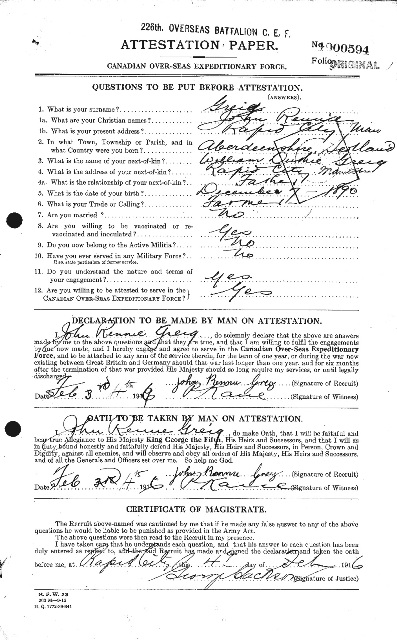 226th. OVERSEAS BATTALION C. E. F.
ATTESTATION PAPER.
No. 900594
Folio. ORIGINAL
CANADIAN OVER-SEAS EXPEDITIONARY FORCE.
QUESTIONS TO BE PUT BEFORE ATTESTATION.
(ANSWERS).
1. What is your surname? Greig
1a. What are your Christian names? John Rennie
1b. What is your present address? Rapid City Man
2. In what Town, Township or Parish, and in
what Country were you born? Aberdeenshire, Scotland
3. What is the name of your next-of-kin? William Greig
4. What is the address of your next-of-kin? Rapid City, Manitoba
4a. What is the relationship of your next-of-kin? Father
5. What is the date of your birth? December 1890
6. What is your Trade or Calling? Farmer
7. Are you married? No
8. Are you willing to be vaccinated or re-
vaccinated and inoculated? Yes
9. Do you now belong to the Active Militia? No
10. Have you ever served in any Military Force? No
If so, state particulars of former service.
11. Do you understand the nature and terms of
your engagement? Yes
12. Are you willing to be attested to serve in the
CANADIAN OVER-SEAS EXPEDITIONARY FORCE? Yes
DECLARATION TO BE MADE BY MAN ON ATTESTATION.
I, John Rennie Greig, do solemnly declare that the above are answers
made by me to the above questions and that they are true, and that I am willing to fulfil the engagements
by me now made, and I hereby engage and agree to serve in the Canadian Over-Seas Expeditionary
Force, and to be attached to any arm of the service therein, for the term of one year, or during the war now
existing between Great Britain and Germany should that war last longer than one year, and for six months
after the termination of that war provided His Majesty should so long require my services, or until legally
discharged.
John Rennie Greig (Signature of Recruit)
Date Feb 4th 1916 (Signature of Witness)
OATH TO BE TAKEN BY MAN ON ATTESTATION.
I, John Rennie Greig, do make Oath, that I will be faithful and
bear true Allegiance to His Majesty King George the Fifth, His Heirs and Successors, and that I will as
in duty bound honestly and faithfully defend His Majesty, His Heirs and Successors, in Person, Crown and
Dignity, against all enemies, and will observe and obey all orders of His Majesty, His Heirs and Successors,
and of all the Generals and Officers set over me. So help me God.
John Rennie Greig (Signature of Recruit)
Date Feb 4 1916 (Signature of Witness)
CERTIFICATE OF MAGISTRATE.
The Recruit above-named was cautioned by me that if he made any false answer to any of the above
questions he would be liable to be punished as provided in the Army Act.
The above questions were then read to the Recruit in my presence.
I have taken care that he understands each question, and that his answer to each question has been
duly entered as replied to, and the said Recruit has made and signed the declaration and taken the oath
before me, at Rapid City this 4th day of Feb 1916
(Signature of Justice)
M. F. W. 23